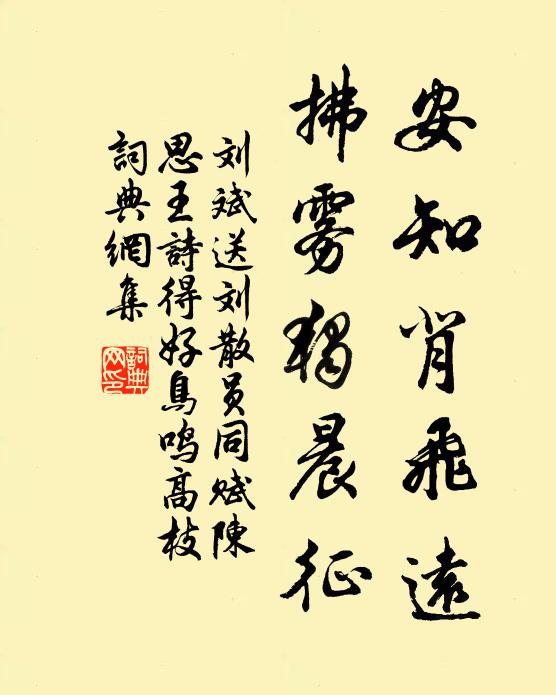 安知背飛遠
拂霧獨晨征
刘斌送刘散员同赋陳
思王詩得好鳥鸣高枝
詞典網集
詞典网印